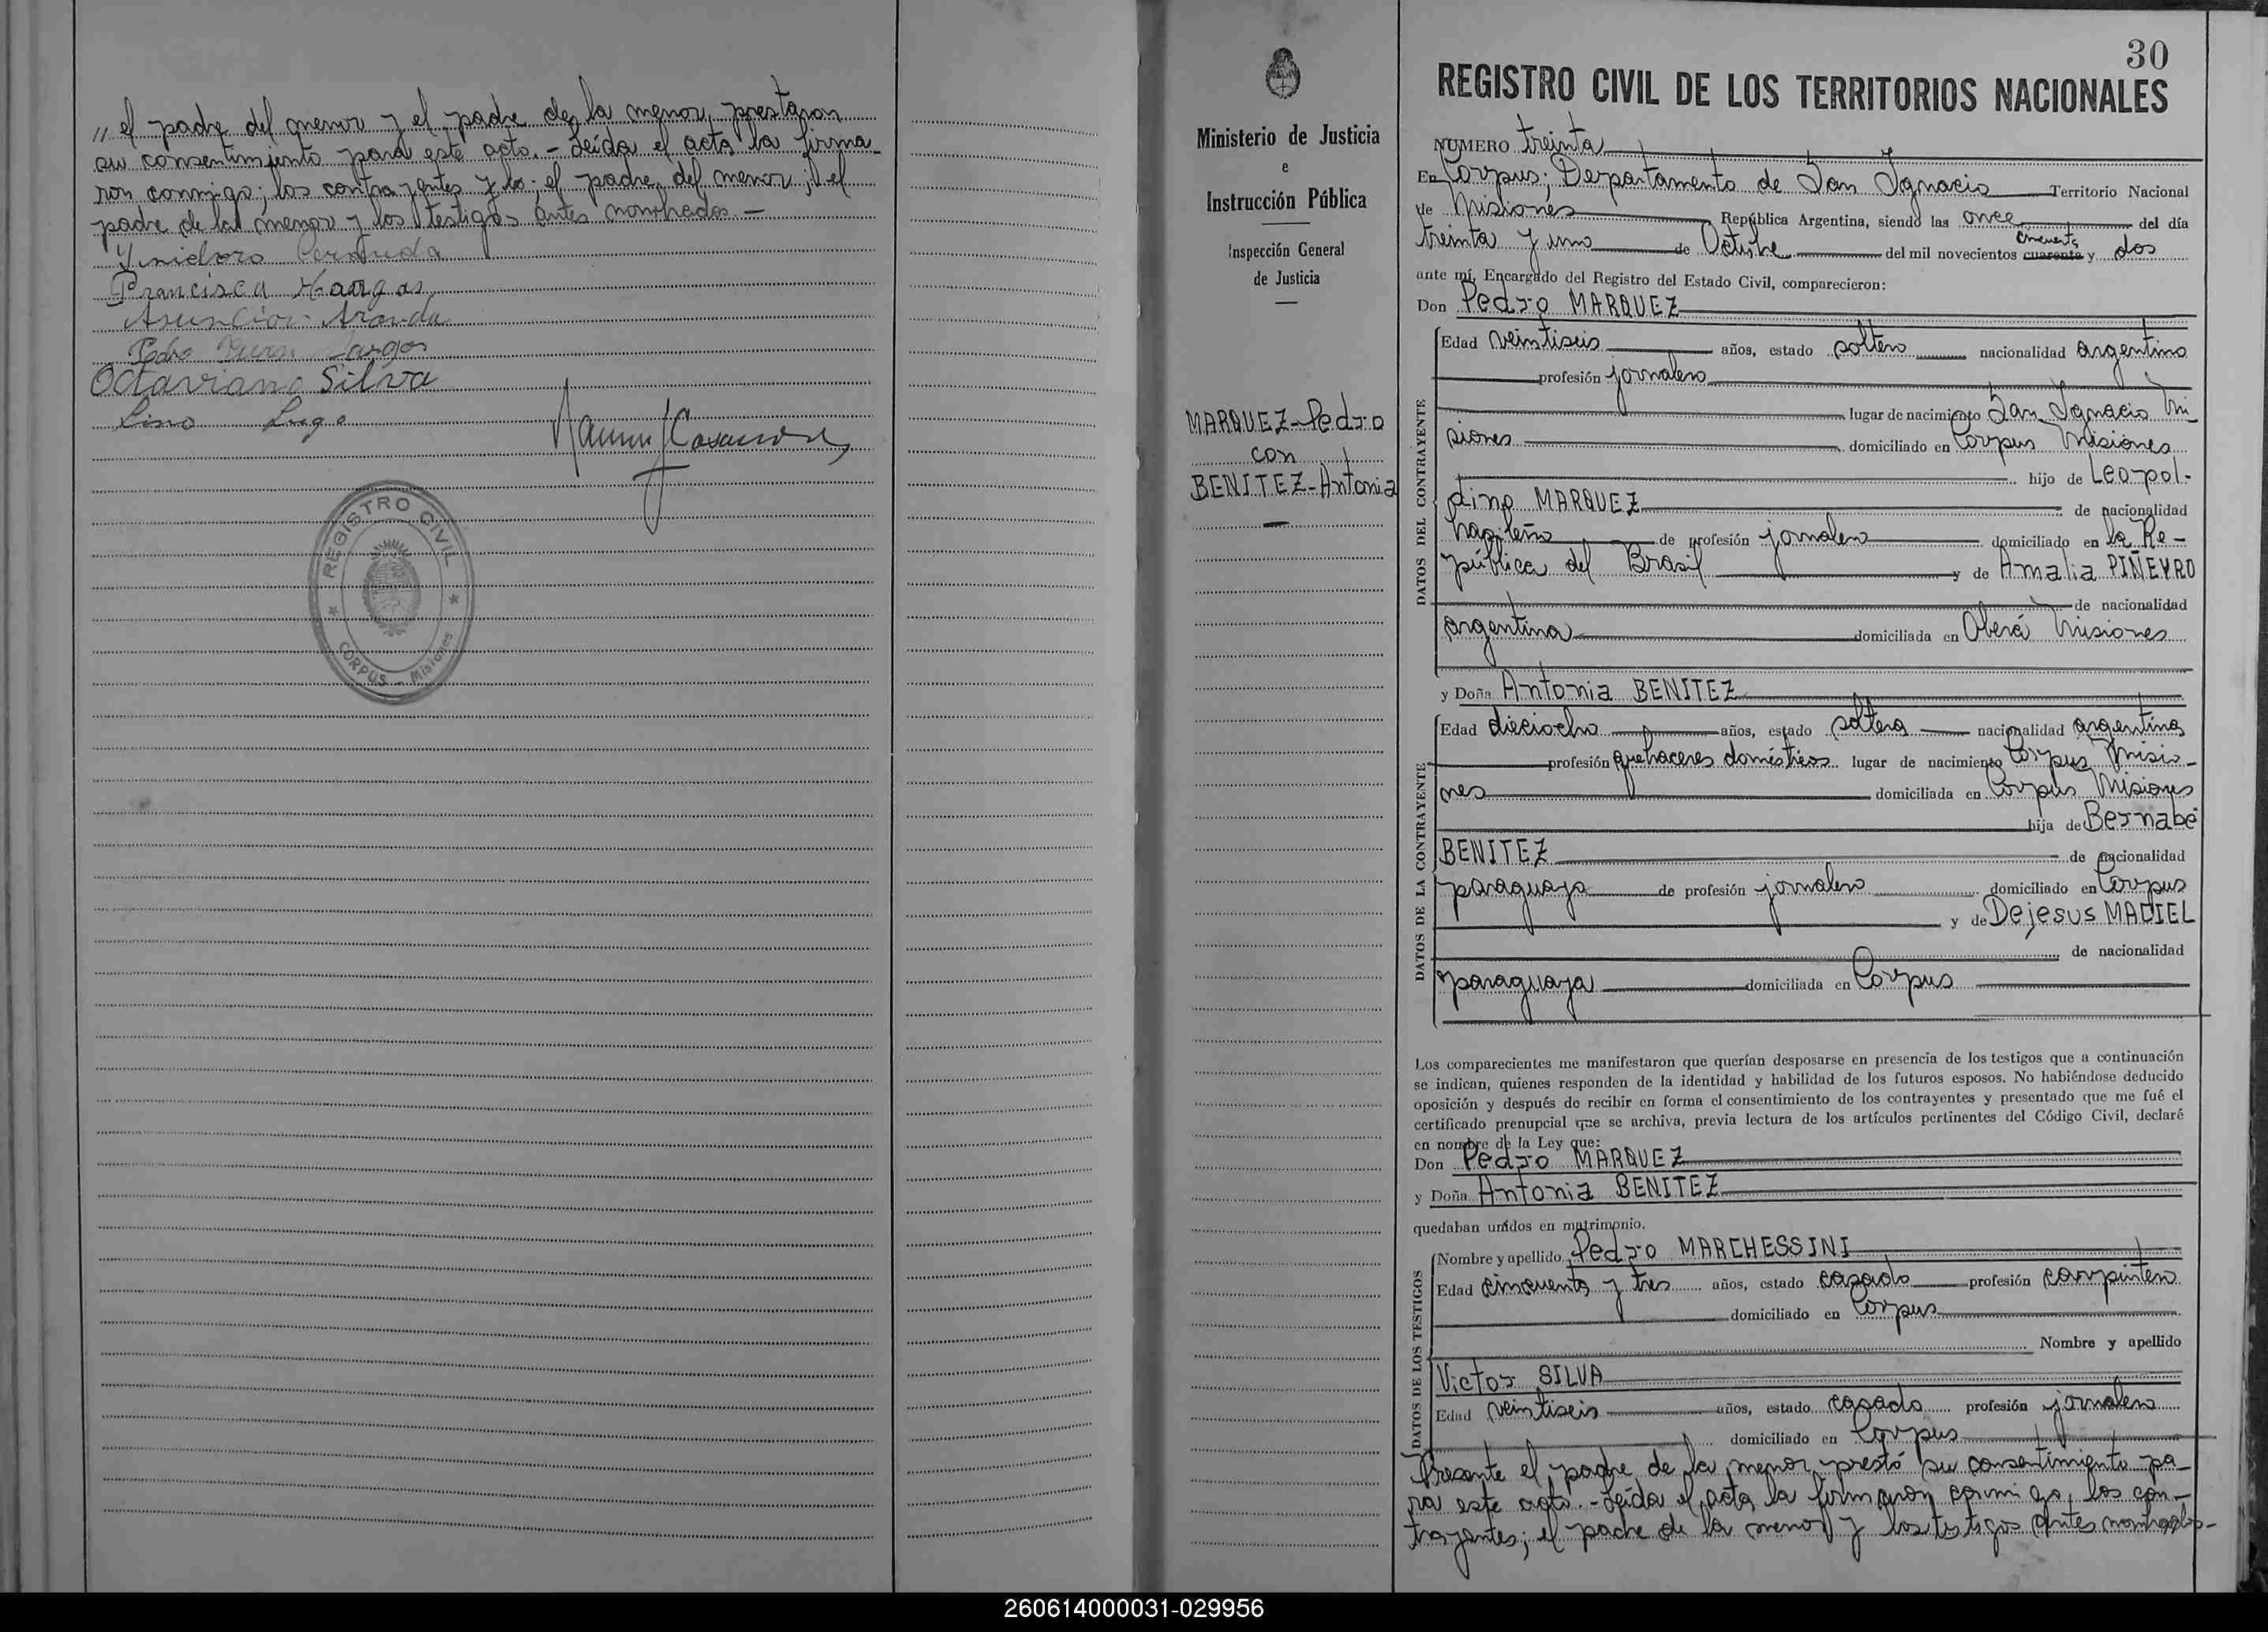 " el padre del menor y el padre de la menor, prestaron
su consentimiento para este acto. - Leída el acta la firma-
ron conmigo; los contrayentes y lo; el padre del menor; el
padre de la menor y los testigos antes nombrados -
Francisca Vargas
Asuncion Aranda
Pedro Vargas
Octaviano Silva
Lino Lugo
REGISTRO CIVIL
CORPUS - Misiones
Ministerio de Justicia
e
Instrucción Pública
Inspección General
de Justicia
MARQUEZ-Pedro
con
BENITEZ-Antonia
30
REGISTRO CIVIL DE LOS TERRITORIOS NACIONALES
NUMERO treinta
En Corpus; Departamento de San Ignacio Territorio Nacional
de Misiones República Argentina, siendo las once del día
treinta y uno de Octubre del mil novecientos cuarenta cincuenta y dos
ante mí, Encargado del Registro del Estado Civil, comparecieron:
Don Pedro MARQUEZ
DATOS DEL CONTRAYENTE
Edad veintiseis años, estado soltero nacionalidad argentino
profesión jornalero
lugar de nacimiento San Ignacio Mi
siones domiciliado en Corpus Misiones
hijo de Leopol-
dino MARQUEZ de nacionalidad
brasileño de profesión jornalero domiciliado en la Re-
pública del Brasil y de Amalia PIÑEYRO
de nacionalidad
argentina domiciliada en Oberá Misiones
y Doña Antonia BENITEZ
DATOS DE LA CONTRAYENTE
Edad dieciocho años, estado soltera nacionalidad argentina
profesión quehaceres domésticos lugar de nacimiento Corpus Misio-
nes domiciliada en Corpus Misiones
hija de Bernabé
BENITEZ de nacionalidad
paraguayo de profesión jornalero domiciliado en Corpus
y de Dejesus MACIEL
de nacionalidad
paraguaya domiciliada en Corpus
Los comparecientes me manifestaron que querían desposarse en presencia de los testigos que a continuación
se indican, quienes responden de la identidad y habilidad de los futuros esposos. No habiéndose deducido
oposición y después de recibir en forma el consentimiento de los contrayentes y presentado que me fué el
certificado prenupcial que se archiva, previa lectura de los artículos pertinentes del Código Civil, declaré
en nombre de la Ley que:
Don Pedro MARQUEZ
y Doña Antonia BENITEZ
quedaban unidos en matrimonio.
DATOS DE LOS TESTIGOS
Nombre y apellido Pedro MARCHESSINI
Edad cincuenta y tres años, estado casado profesión carpintero
domiciliado en Corpus
Nombre y apellido
Victor SILVA
Edad veintiseis años, estado casado profesión jornalero
domiciliado en Corpus
Presente el padre de la menor prestó su consentimiento pa-
ra este acto. - Leída el acta la firmaron conmigo, los con-
trayentes; el padre de la menor y los testigos antes nombrados-
260614000031-029956